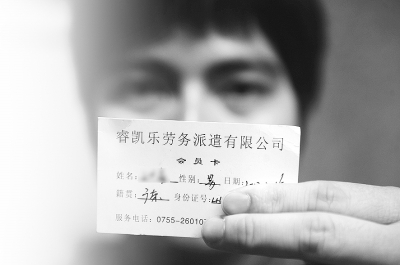 睿凯乐劳务派遣有限公司
会员卡
姓名: 性别: 男 日期:
籍贯: 身份证号:
服务电话: 0755-26010